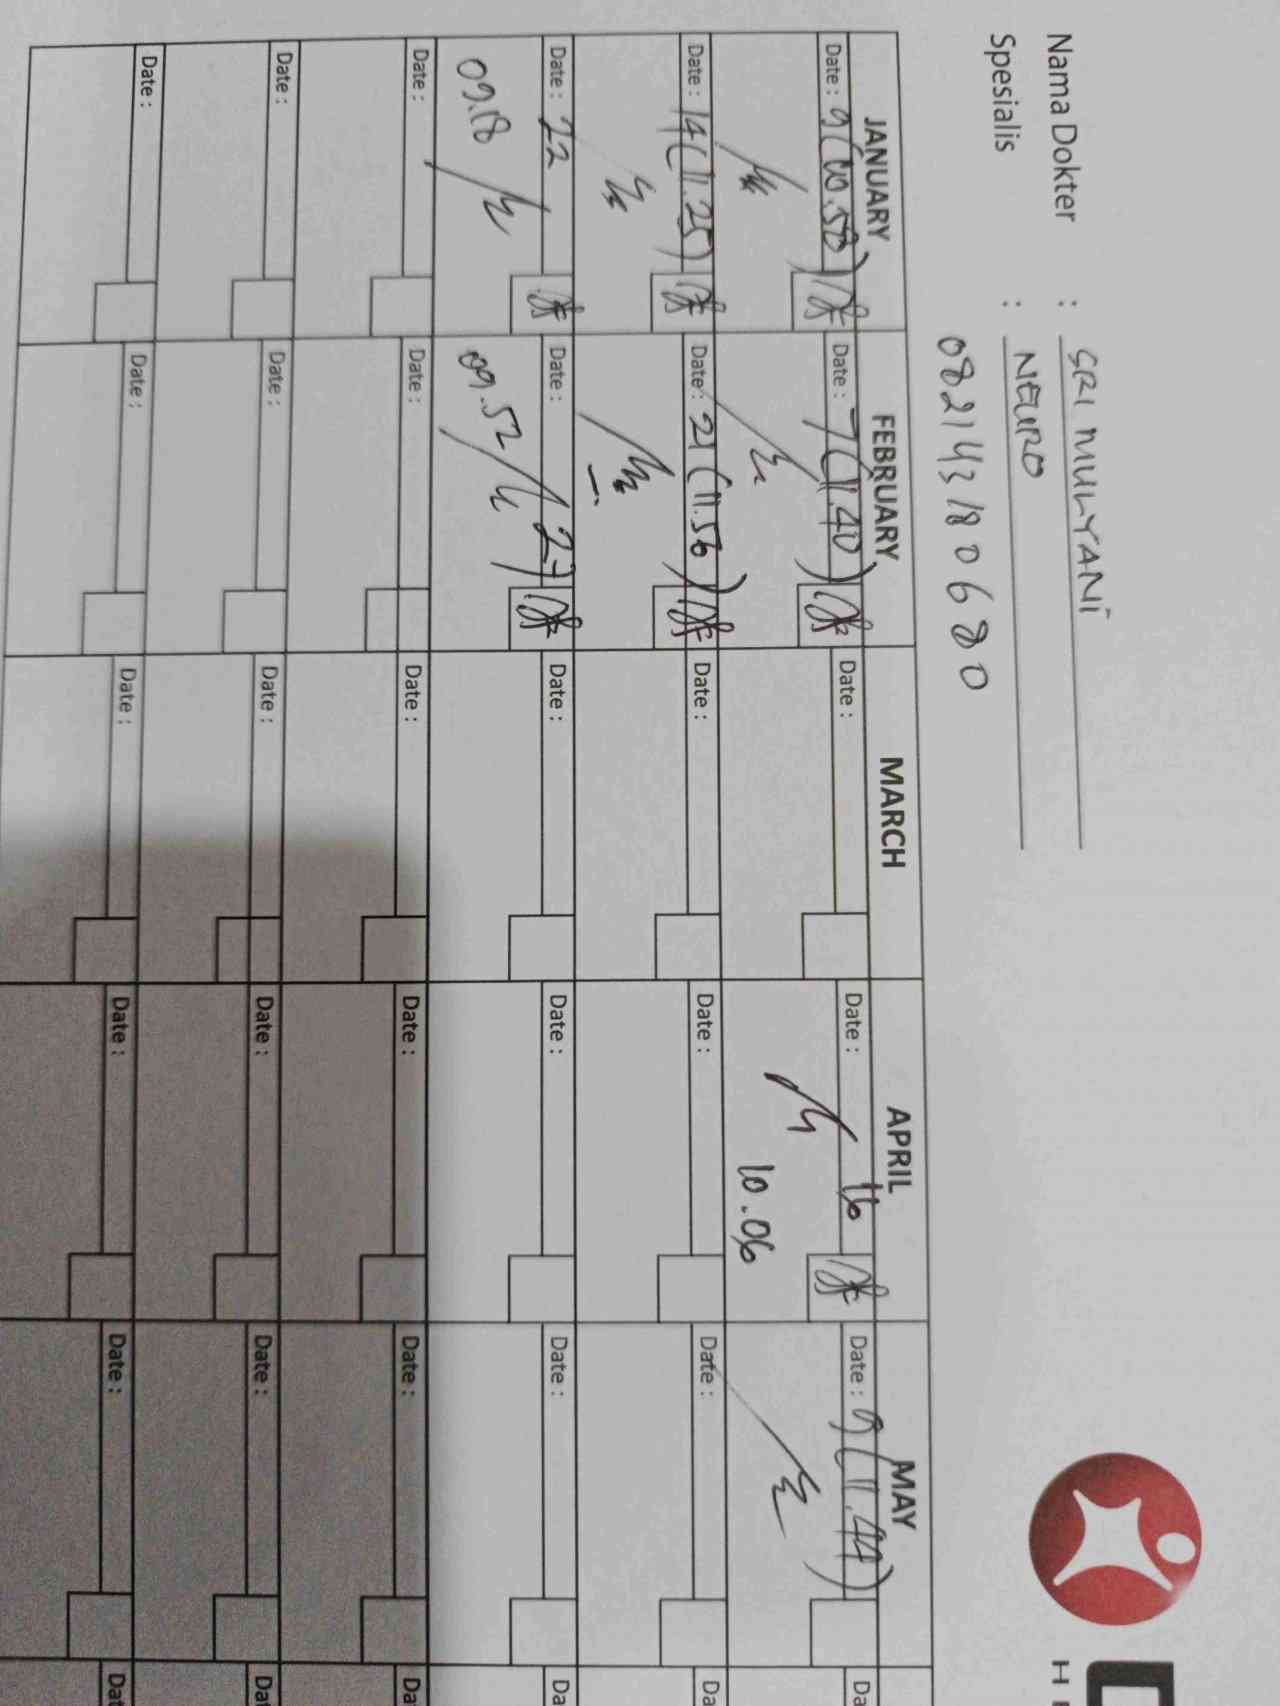 Nama Dokter : SRI MULYANI
Spesialis : NEURO
082143180680
JANUARY FEBRUARY MARCH APRIL MAY
Date : 9 (10.50) Date : 7 (11.40) Date : Date : 16 Date : 9 (11.44)
10.06
Date : 14 (11.25) Date : 21 (11.56) Date : Date : Date :
Date : 22 Date : 27 Date : Date : Date :
09.18 09.52
Date : Date : Date : Date : Date :
Date : Date : Date : Date : Date :
Date : Date : Date : Date : Date :